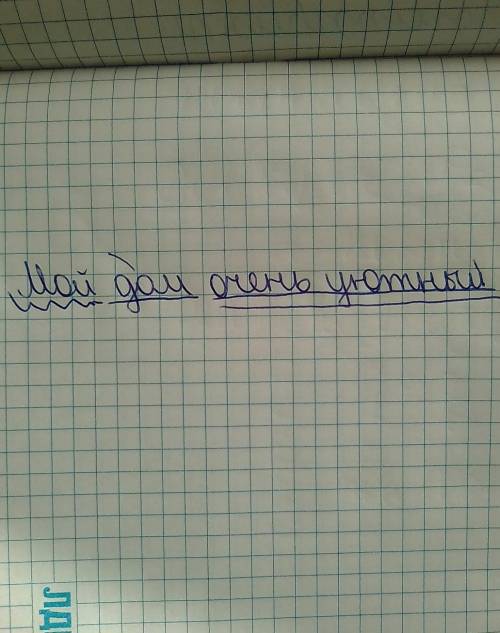 Мой дом очень уютный
ЛД